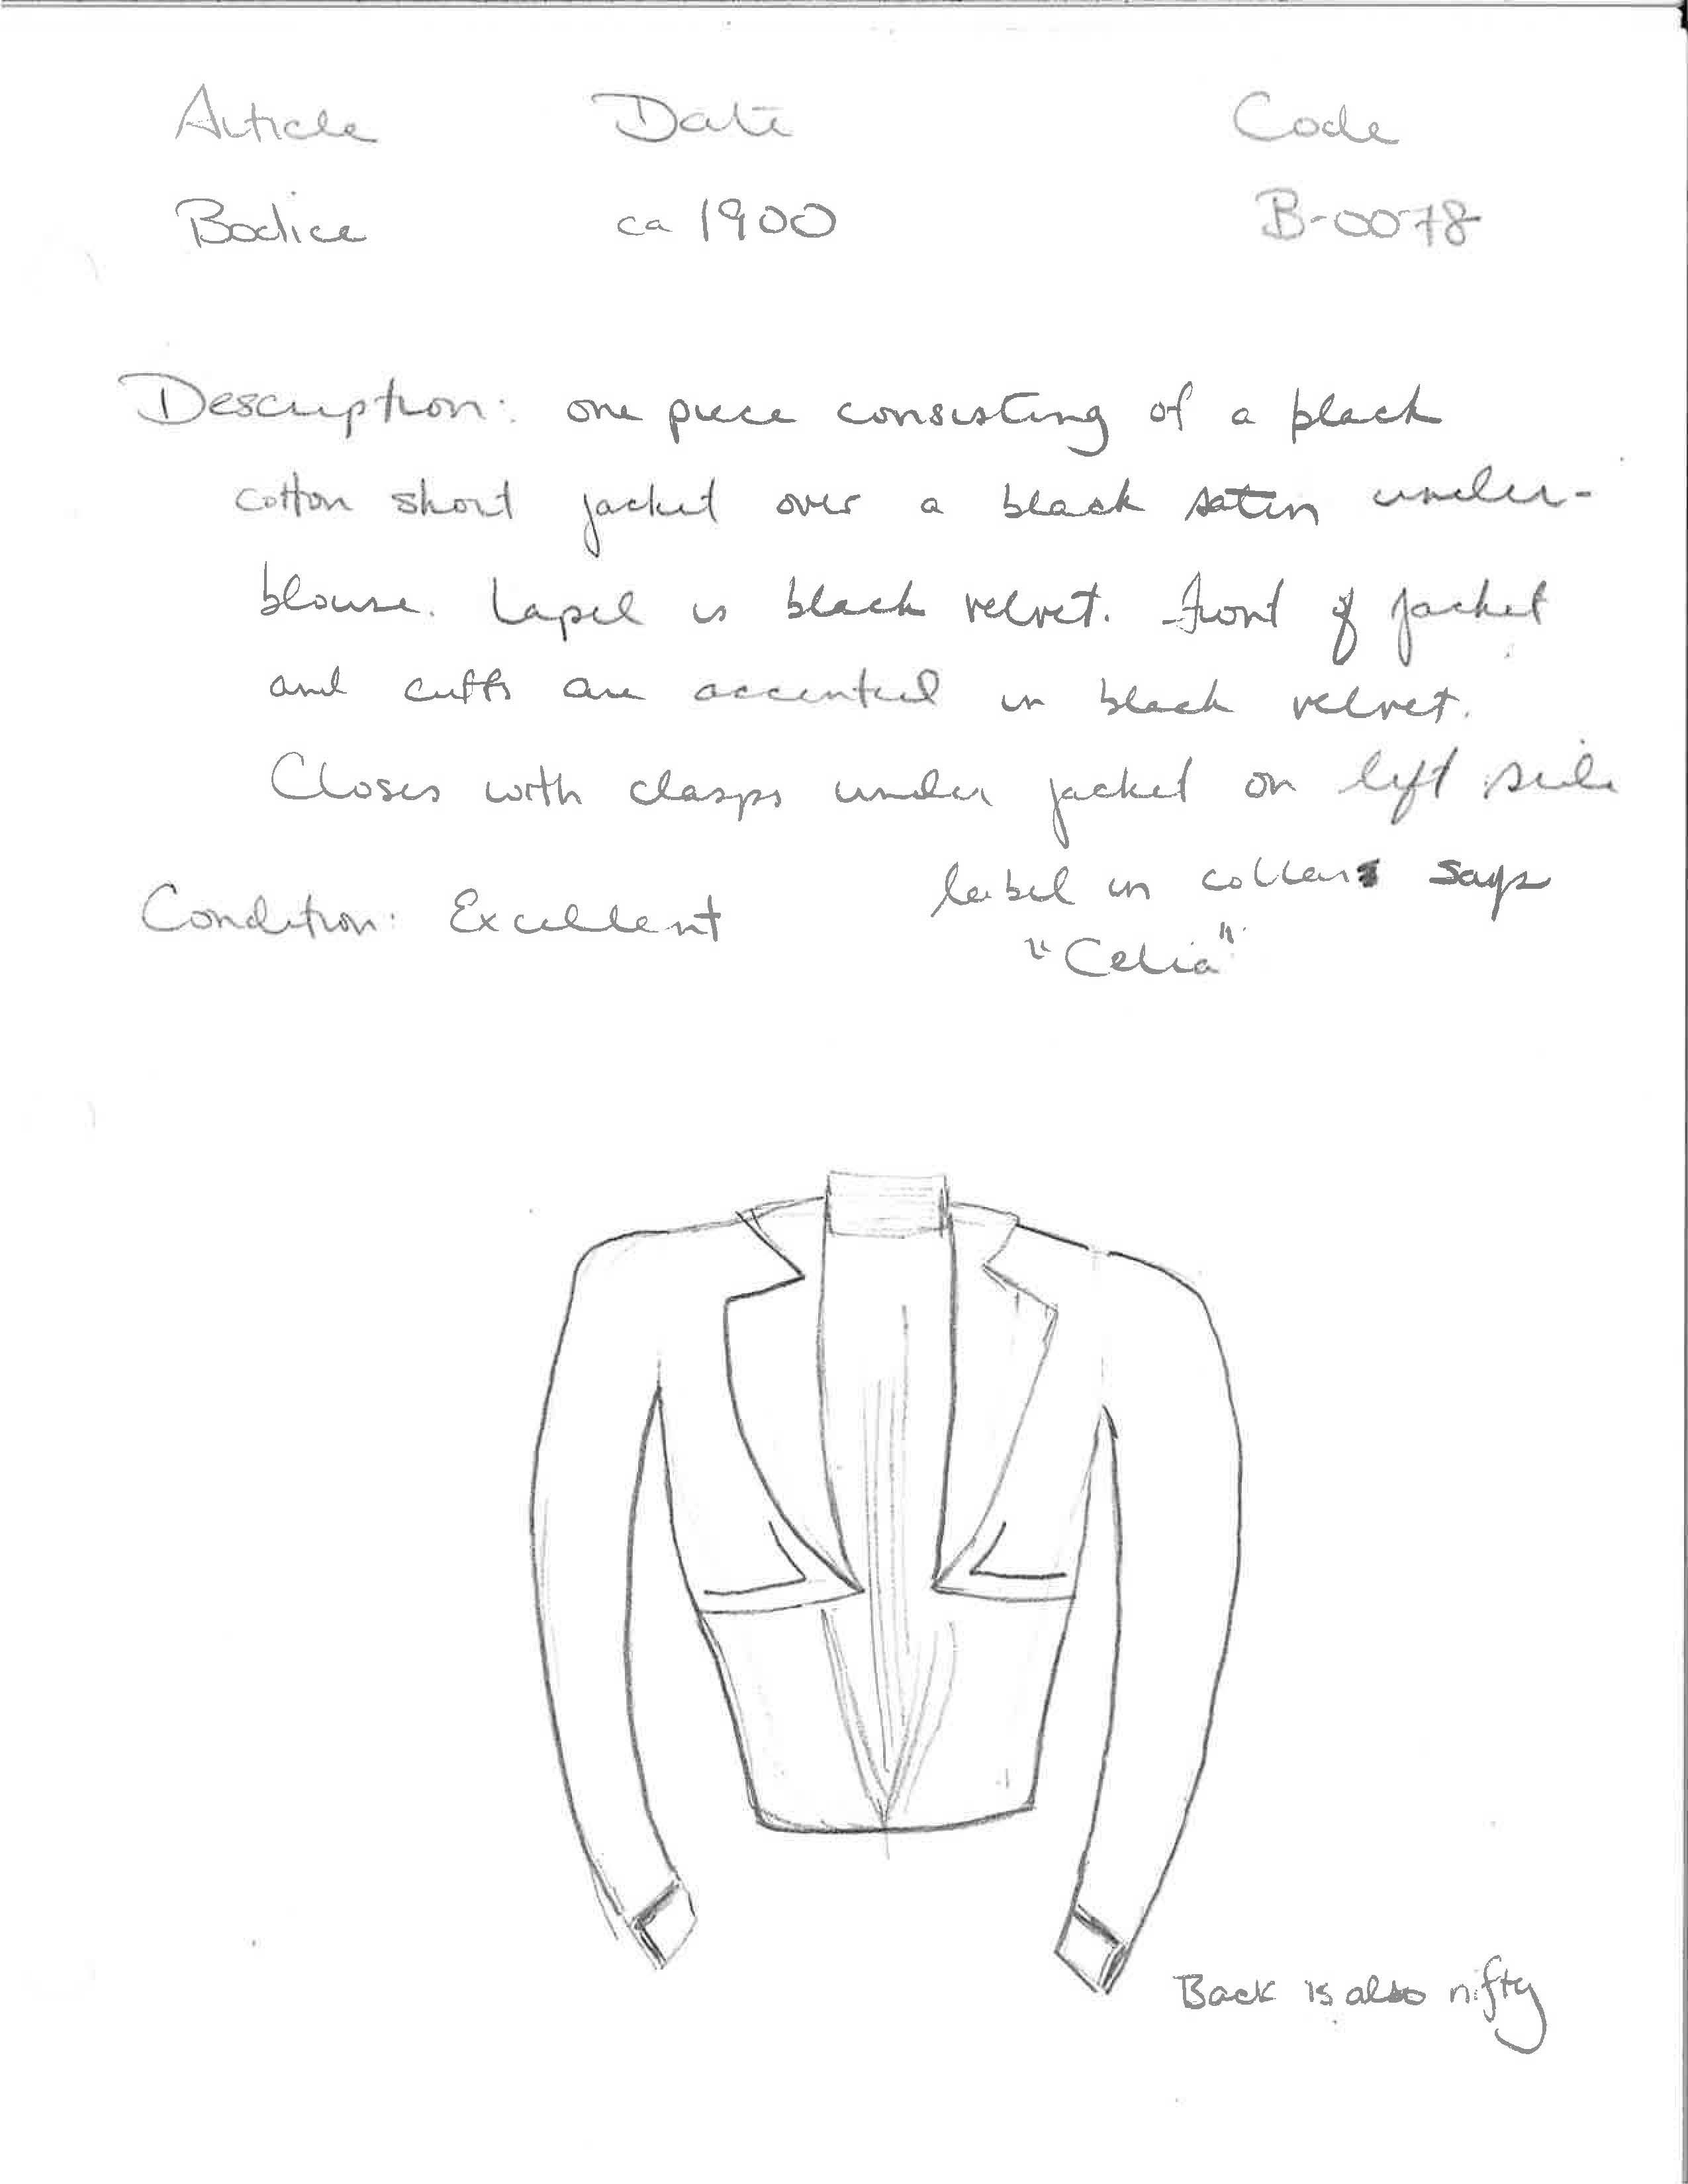 Article Date Code
Bodice ca 1900 B-0078
Description: one piece consisting of a black
cotton short jacket over a black satin under-
blouse. Lapel is black velvet. Front of jacket
and cuffs are accented in black velvet.
Closes with clasps under jacket on left side
Condition: Excellent
label in collar says
"Celia"
Back is also nifty